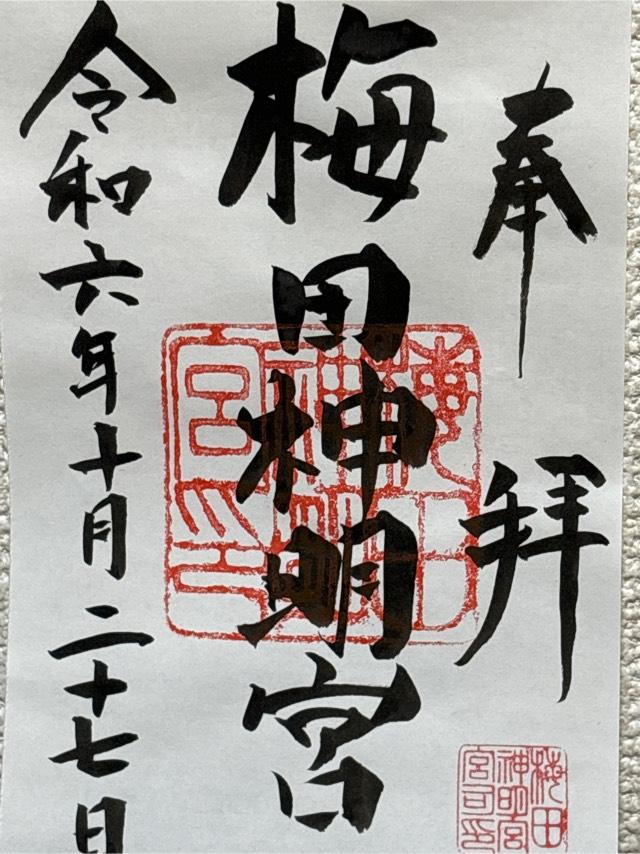 奉拝
梅田神明宮
令和六年十月二十七日
梅田神明宮印
梅田
神明宮
宮司印